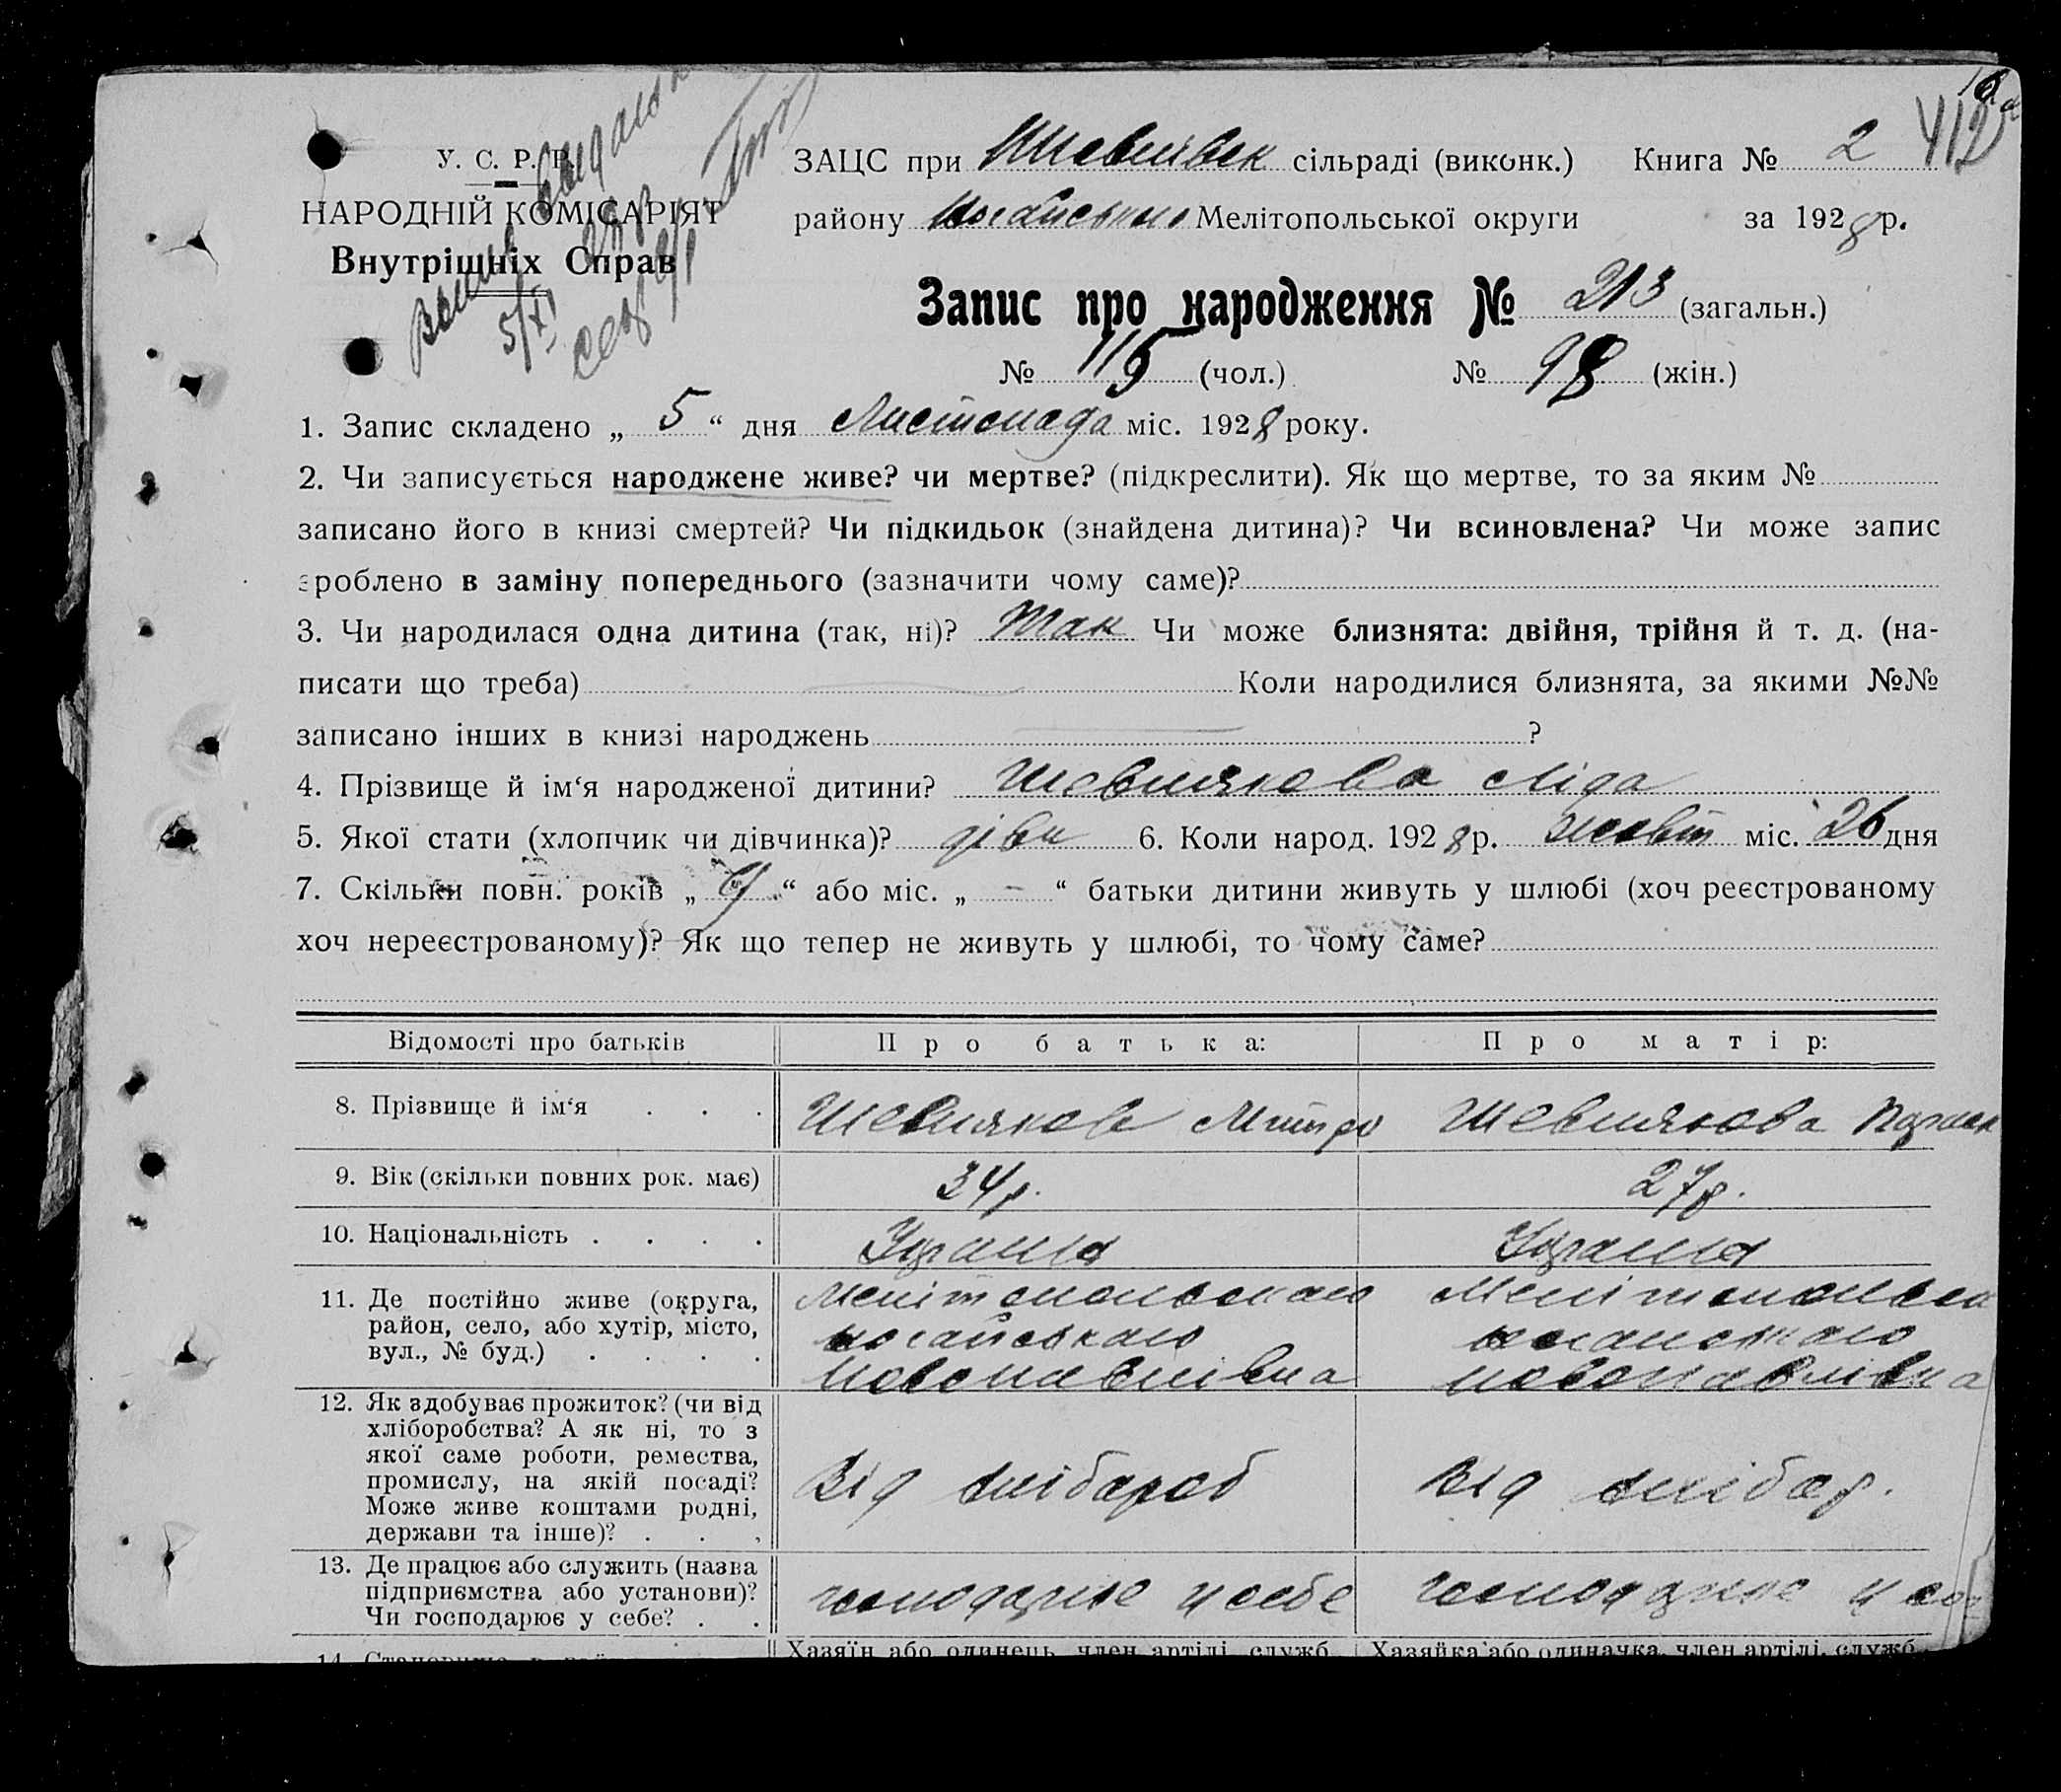 У. С. Р. Р.
НАРОДНІЙ КОМІСАРІЯТ
Внутрішніх Справ
5/XI
ЗАЦС при сільраді (виконк.) Книга № 2 412
району Мелітопольської округи за 1928 р.
Запис про народження № 213 (загальн.)
№ 115 (чол.) № 98 (жін.)
1. Запис складено „ 5 “ дня Листопада міс. 1928 року.
2. Чи записується народжене живе? чи мертве? (підкреслити). Як що мертве, то за яким №
записано його в книзі смертей? Чи підкидьок (знайдена дитина)? Чи всиновлена? Чи може запис
зроблено в заміну попереднього (зазначити чому саме)?
3. Чи народилася одна дитина (так, ні)? Так Чи може близнята: двійня, трійня й т. д. (на-
писати що треба) Коли народилися близнята, за якими №№
записано інших в книзі народжень ?
4. Прізвище й ім‘я народженої дитини? Шевлякова Ліда
5. Якої стати (хлопчик чи дівчинка)? дівч 6. Коли народ. 1928 р. жовт міс. 26 дня
7. Скільки повн. років „ 9 “ або міс. „ - “ батьки дитини живуть у шлюбі (хоч реєстрованому
хоч нереєстрованому)? Як що тепер не живуть у шлюбі, то чому саме?
Відомості про батьків Про батька: Про матір:
8. Прізвище й ім‘я . . . Шевляков Шевлякова
9. Вік (скільки повних рок. має) 34 р. 27 р.
10. Національність . . . . Украін Украін
11. Де постійно живе (округа,
район, село, або хутір, місто,
вул., № буд.) . . . .
Мелітопольского Мелітопольск
ногайського ногайського
Новопавлівка новопавлівка
12. Як здобуває прожиток? (чи від
хліборобства? А як ні, то з
якої саме роботи, ремества,
промислу, на якій посаді?
Може живе коштами родні,
держави та інше)? . . .
Від хлібароб Від хлібар.
13. Де працює або служить (назва
підприємства або установи)?
Чи господарює у себе? . .
господарює у себе господарює у
14.
Хазяїн або одинець, член артілі, служб. Хазяйка або одиначка, член артілі, служб.